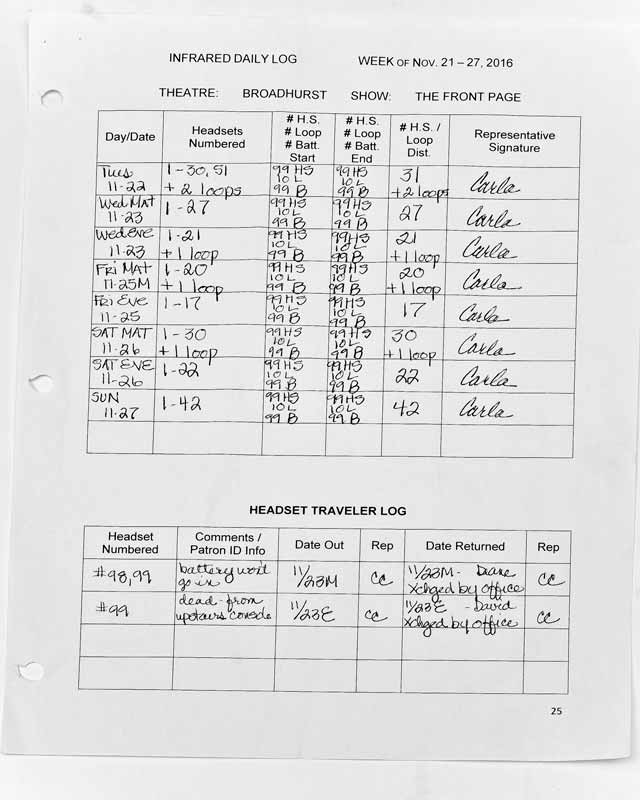 INFRARED DAILY LOG WEEK OF NOV. 21 – 27, 2016
THEATRE: BROADHURST SHOW: THE FRONT PAGE
Day/Date Headsets Numbered # H.S. # Loop # Batt. Start # H.S. # Loop # Batt. End # H.S. / Loop Dist. Representative Signature
Tues 11-22 1-30, 51 + 2 loops 99 HS 10 L 99 B 99 HS 10 L 99 B 31 + 2 loops Carla
Wed Mat 11-23 1-27 99 HS 10 L 99 B 99 HS 10 L 99 B 27 Carla
Wed Eve 11-23 1-21 + 1 loop 99 HS 10 L 99 B 99 HS 10 L 99 B 21 + 1 loop Carla
Fri Mat 11-25M 1-20 + 1 loop 99 HS 10 L 99 B 99 HS 10 L 99 B 20 + 1 loop Carla
Fri Eve 11-25 1-17 99 HS 10 L 99 B 99 HS 10 L 99 B 17 Carla
SAT MAT 11-26 1-30 + 1 loop 99 HS 10 L 99 B 99 HS 10 L 99 B 30 + 1 loop Carla
SAT EVE 11-26 1-22 99 HS 10 L 99 B 99 HS 10 L 99 B 22 Carla
SUN 11-27 1-42 99 HS 10 L 99 B 99 HS 10 L 99 B 42 Carla
HEADSET TRAVELER LOG
Headset Numbered Comments / Patron ID Info Date Out Rep Date Returned Rep
#98,99 battery won't go in 11/23M CC 11/23M - Diane Xchged by office CC
#99 dead - from upstairs console 11/23E CC 11/23E - David Xchged by office CC
25